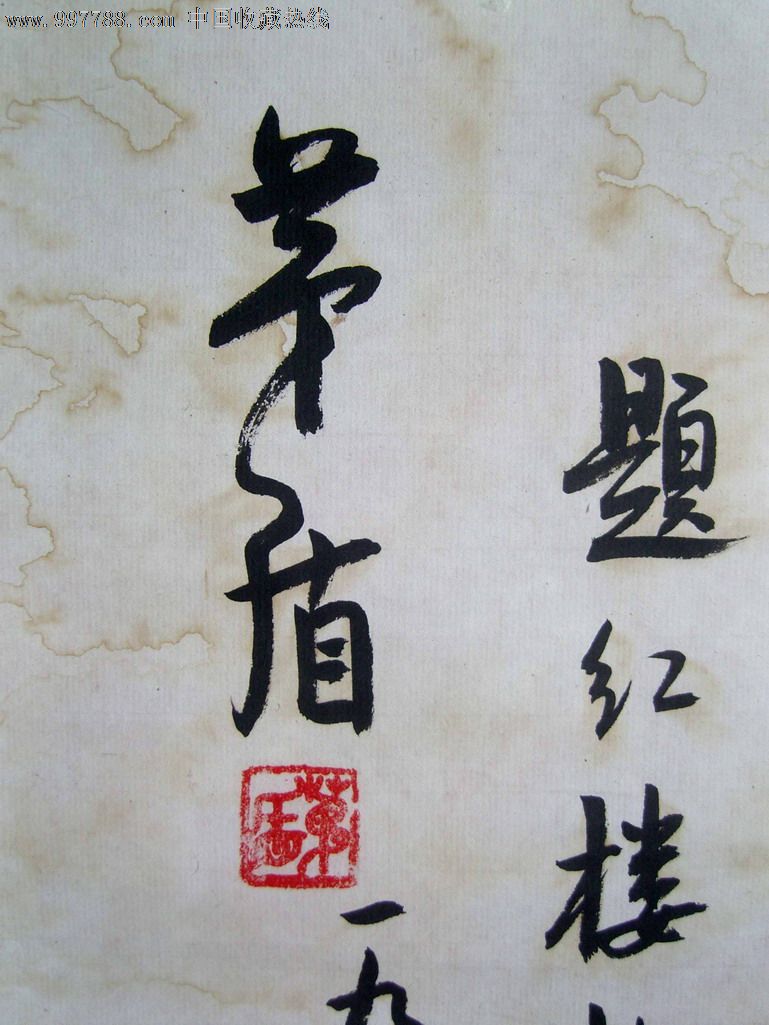 www.997788.com 中国收藏热线
题红楼
茅盾
茅盾
一九